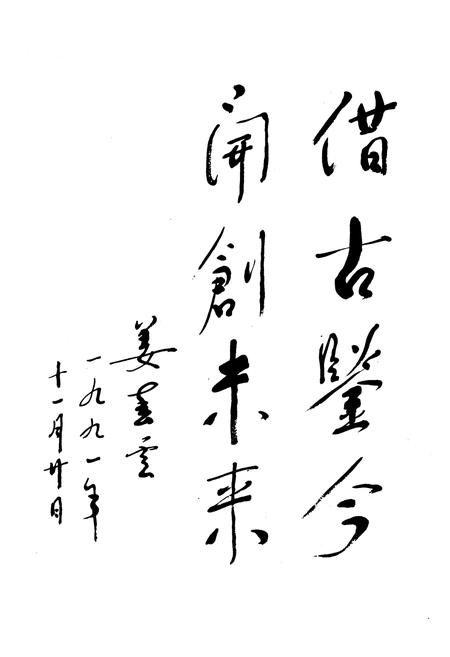 借古鑒今
開創未来
姜春雲
一九九一年
十一月廿日